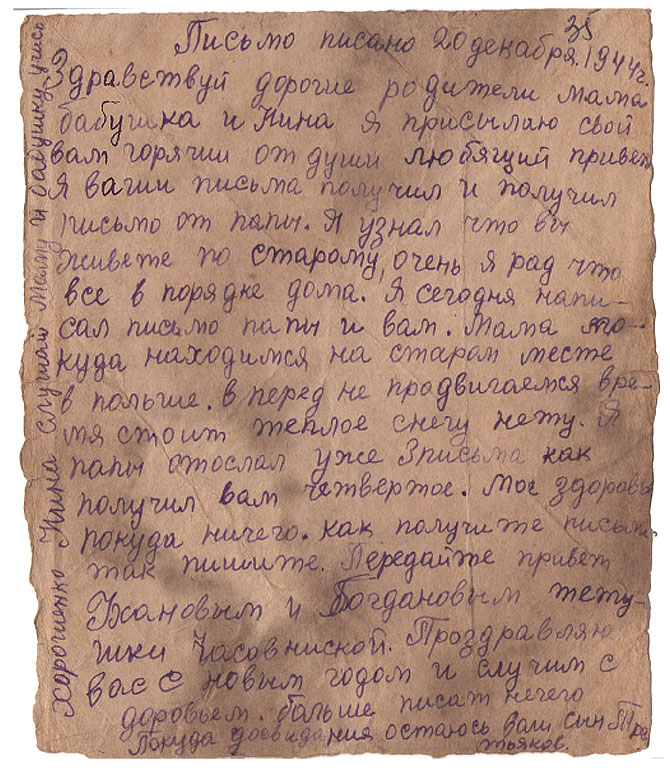 35
Письмо писано 20 декабря. 1944 г.
Здравствуй дорогие родители мама
бабушка и Нина я присылаю свой
вам горячии от души любящий привет
Я ваши письма получил и получил
письмо от папы. Я узнал что вы
живете по старому, очень я рад что
все в порядке дома. Я сегодня напи-
сал письмо папы и вам. Мама по-
куда находимся на старом месте
в польше. в перед не продвигаемся вре-
мя стоит теплое снегу нету. Я
папы отослал уже 3 письма как
получил вам четвертое. Мое здоровье
покуда ничего. как получите письмо
так пишите. Передайте привет
Ухановым и Богдановым тету-
шки Часовниской. Проздравляю
вас с новым годом и случим с
доровьем. больше писат нечего
Покуда досвидания остаюсь ваш сын Тре
тьяков.
Хорошенко Нина слушай маму и бабушку учись